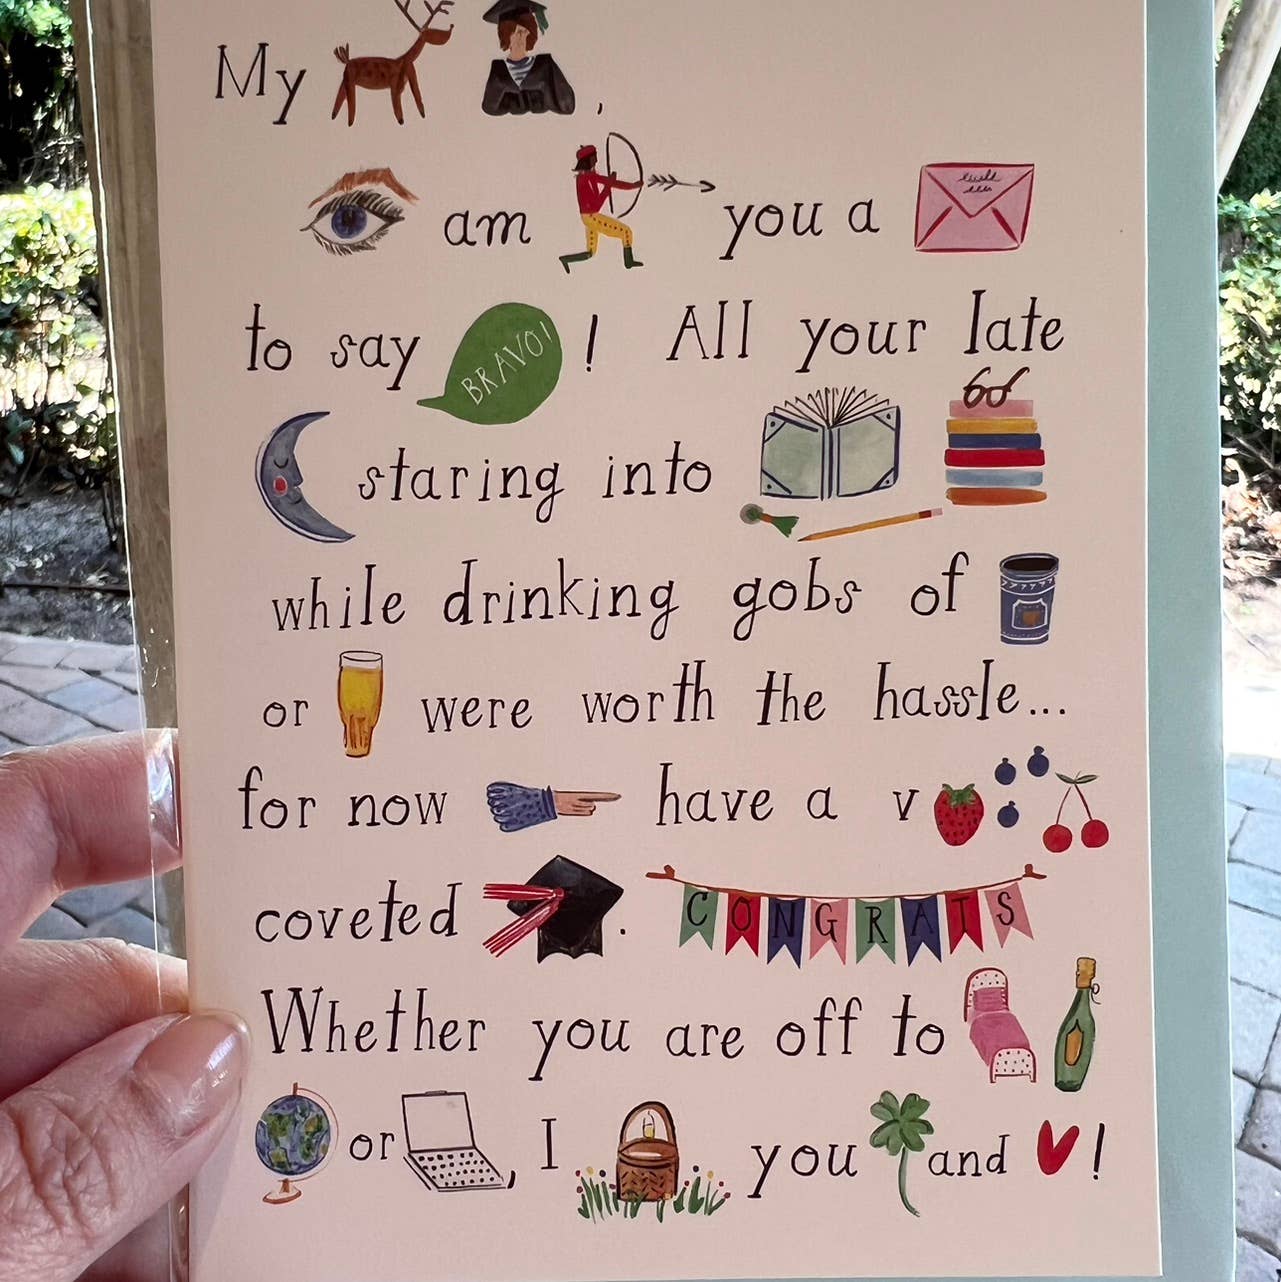 My ,
am you a
to say BRAVO! ! All your late
staring into
while drinking gobs of
or were worth the hassle...
for now have a v
coveted . CONGRATS
Whether you are off to
or , I you and !